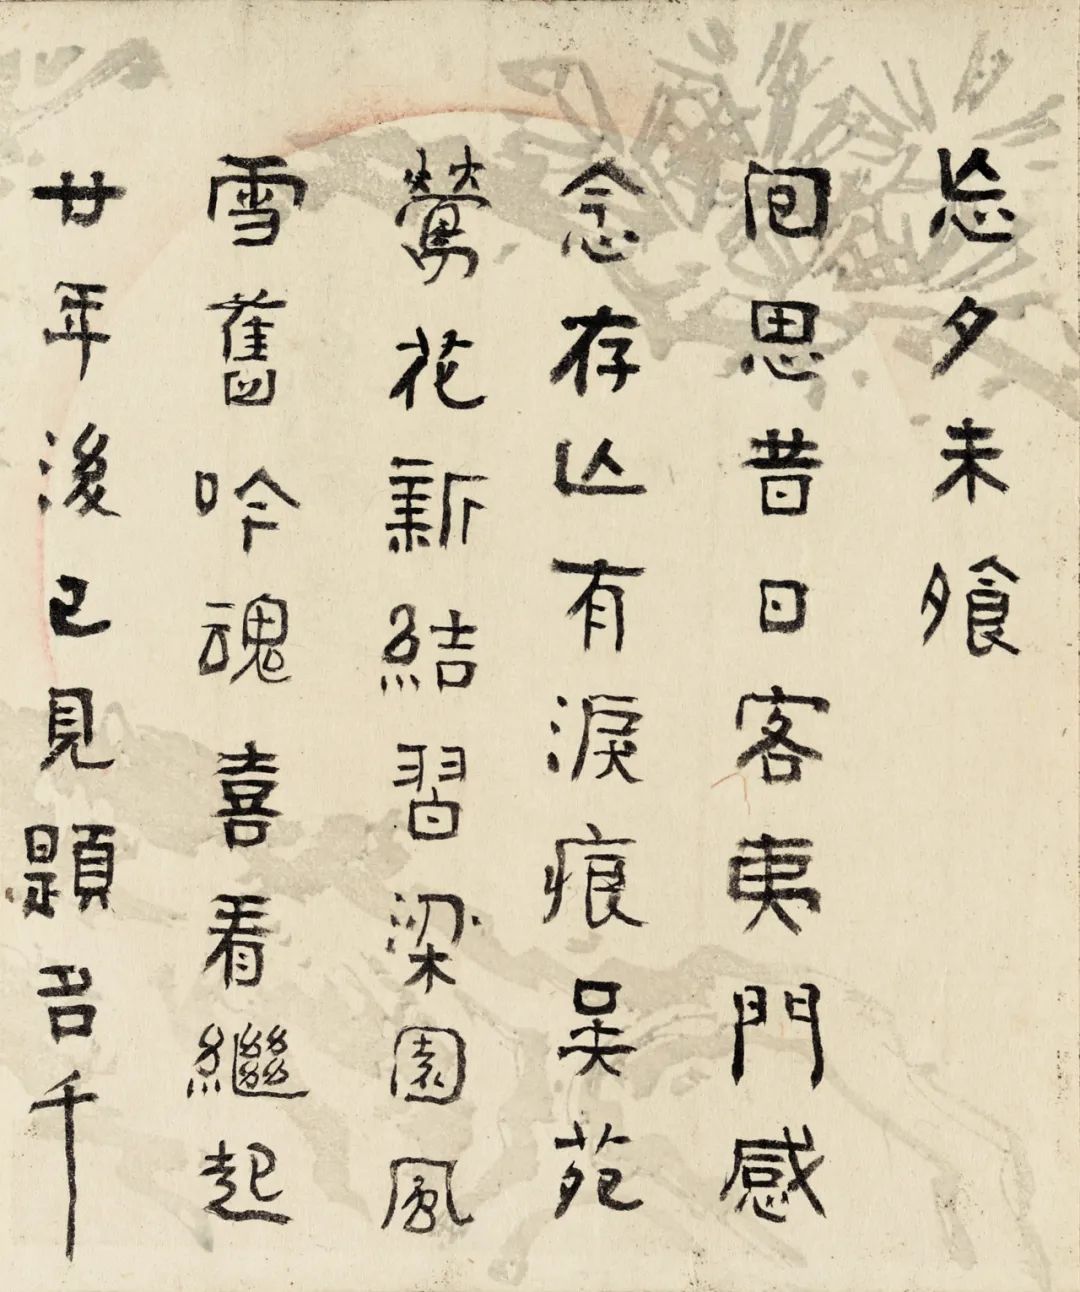 忘夕未飧
囘思昔日客夷門感
念存亾有淚痕吳苑
鶯花新結習梁園風
雪舊吟魂喜看繼起
廿年後已見題名千